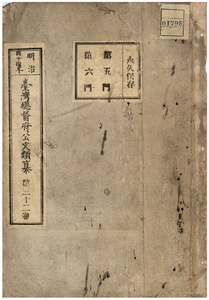 01798
永久保存
第五門
第六門
明治
臺灣總督府公文類纂
第二十二卷